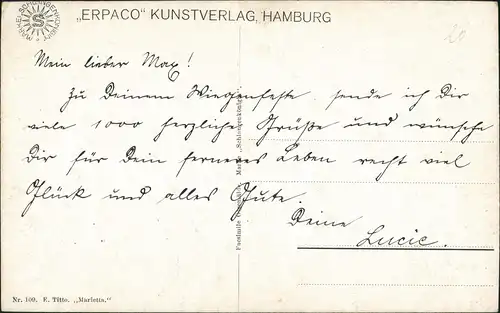 „ERPACO" KUNSTVERLAG, HAMBURG
MARKE: SCHLANGENKÖNIG
S
20
Mein lieber Max!
Zu Deinem Wiegenfeste sende ich Dir
viele 1000 herzliche Grüße und wünsche
Dir für Dein ferneres Leben recht viel
Glück und alles Gute.
Deine
Lucie.
Marke „Schlangenkönig"
Nr. 100. E. Titto. „Marietta."